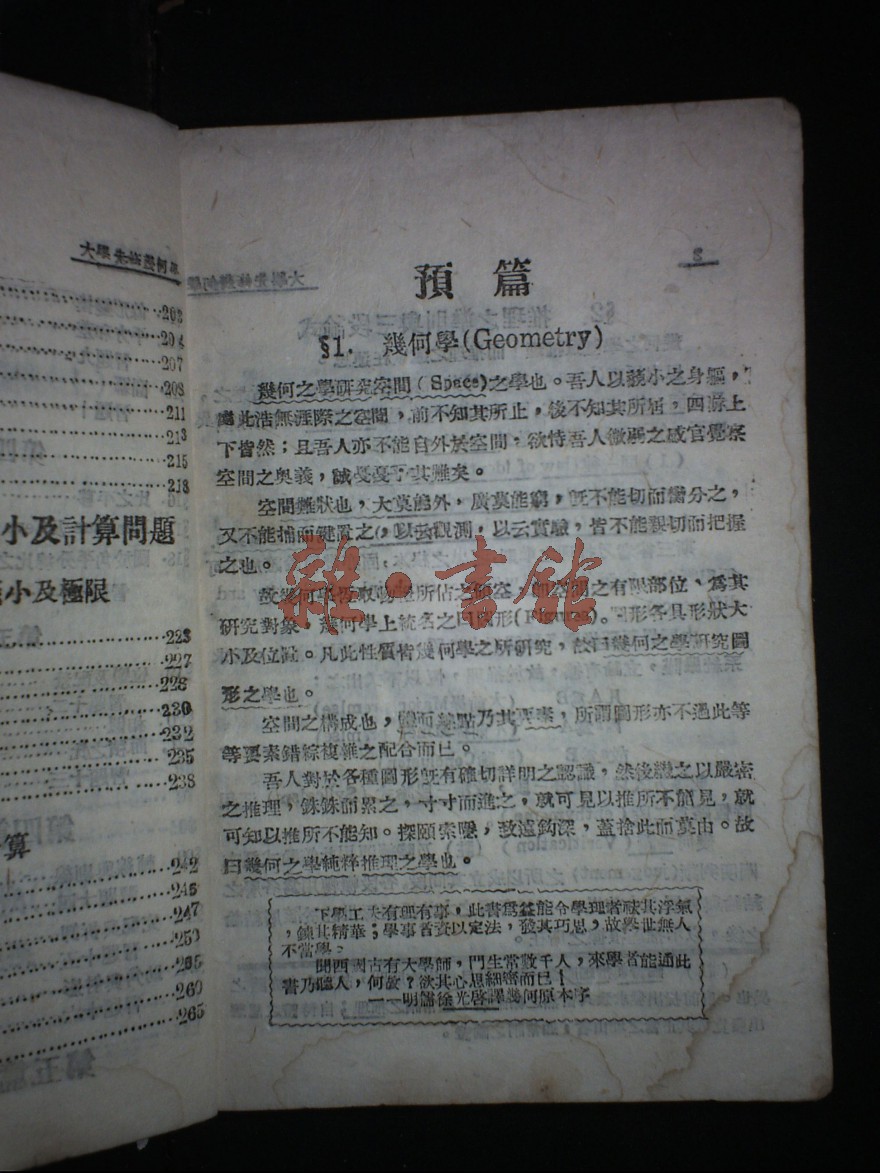 大學先修幾何學
203
204
207
208
211
213
215
218
小及計算問題
小及極限
223
227
228
230
235
238
算
242
245
247
253
265
260
265
預篇
§1. 幾何學(Geometry)
幾何之學研究空間(Space)之學也。吾人以藐小之身軀,
處此浩無涯際之空間,前不知其所止,後不知其所屆,四游上
下皆然;且吾人亦不能自外於空間,欲恃吾人微弱之感官覺察
空間之奧義,誠戛戛乎其難矣。
空間難狀也,大莫能外,廣莫能窮,旣不能切而臠分之,
又不能捕而鍵置之,以云觀測,以云實驗,皆不能親切而把握
之也。
故幾何學專取物體所佔之空間,卽空間之有限部位、爲其
研究對象。幾何學上統名之曰圖形(Figures)。圖形各具形狀大
小及位置。凡此性質皆幾何學之所研究,故曰幾何之學研究圖
形之學也。
空間之構成也,體面線點乃其要素,所謂圖形亦不過此等
等要素錯綜複雜之配合而已。
吾人對於各種圖形旣有確切詳明之認識,然後繼之以嚴密
之推理,銖銖而累之,寸寸而進之,就可見以推所不能見,就
可知以推所不能知。探頤索隱,致遠鈎深,蓋捨此而莫由。故
曰幾何之學純粹推理之學也。
下學工夫有理有事,此書爲益能令學理者祛其浮氣
,鍊其精華;學事者資以定法,發其巧思,故舉世無人
不當學。
聞西國古有大學師,門生常數千人,來學者能通此
書乃聽入,何故?欲其心思細密而已!
——明儒徐光啓譯幾何原本序
雜·書館